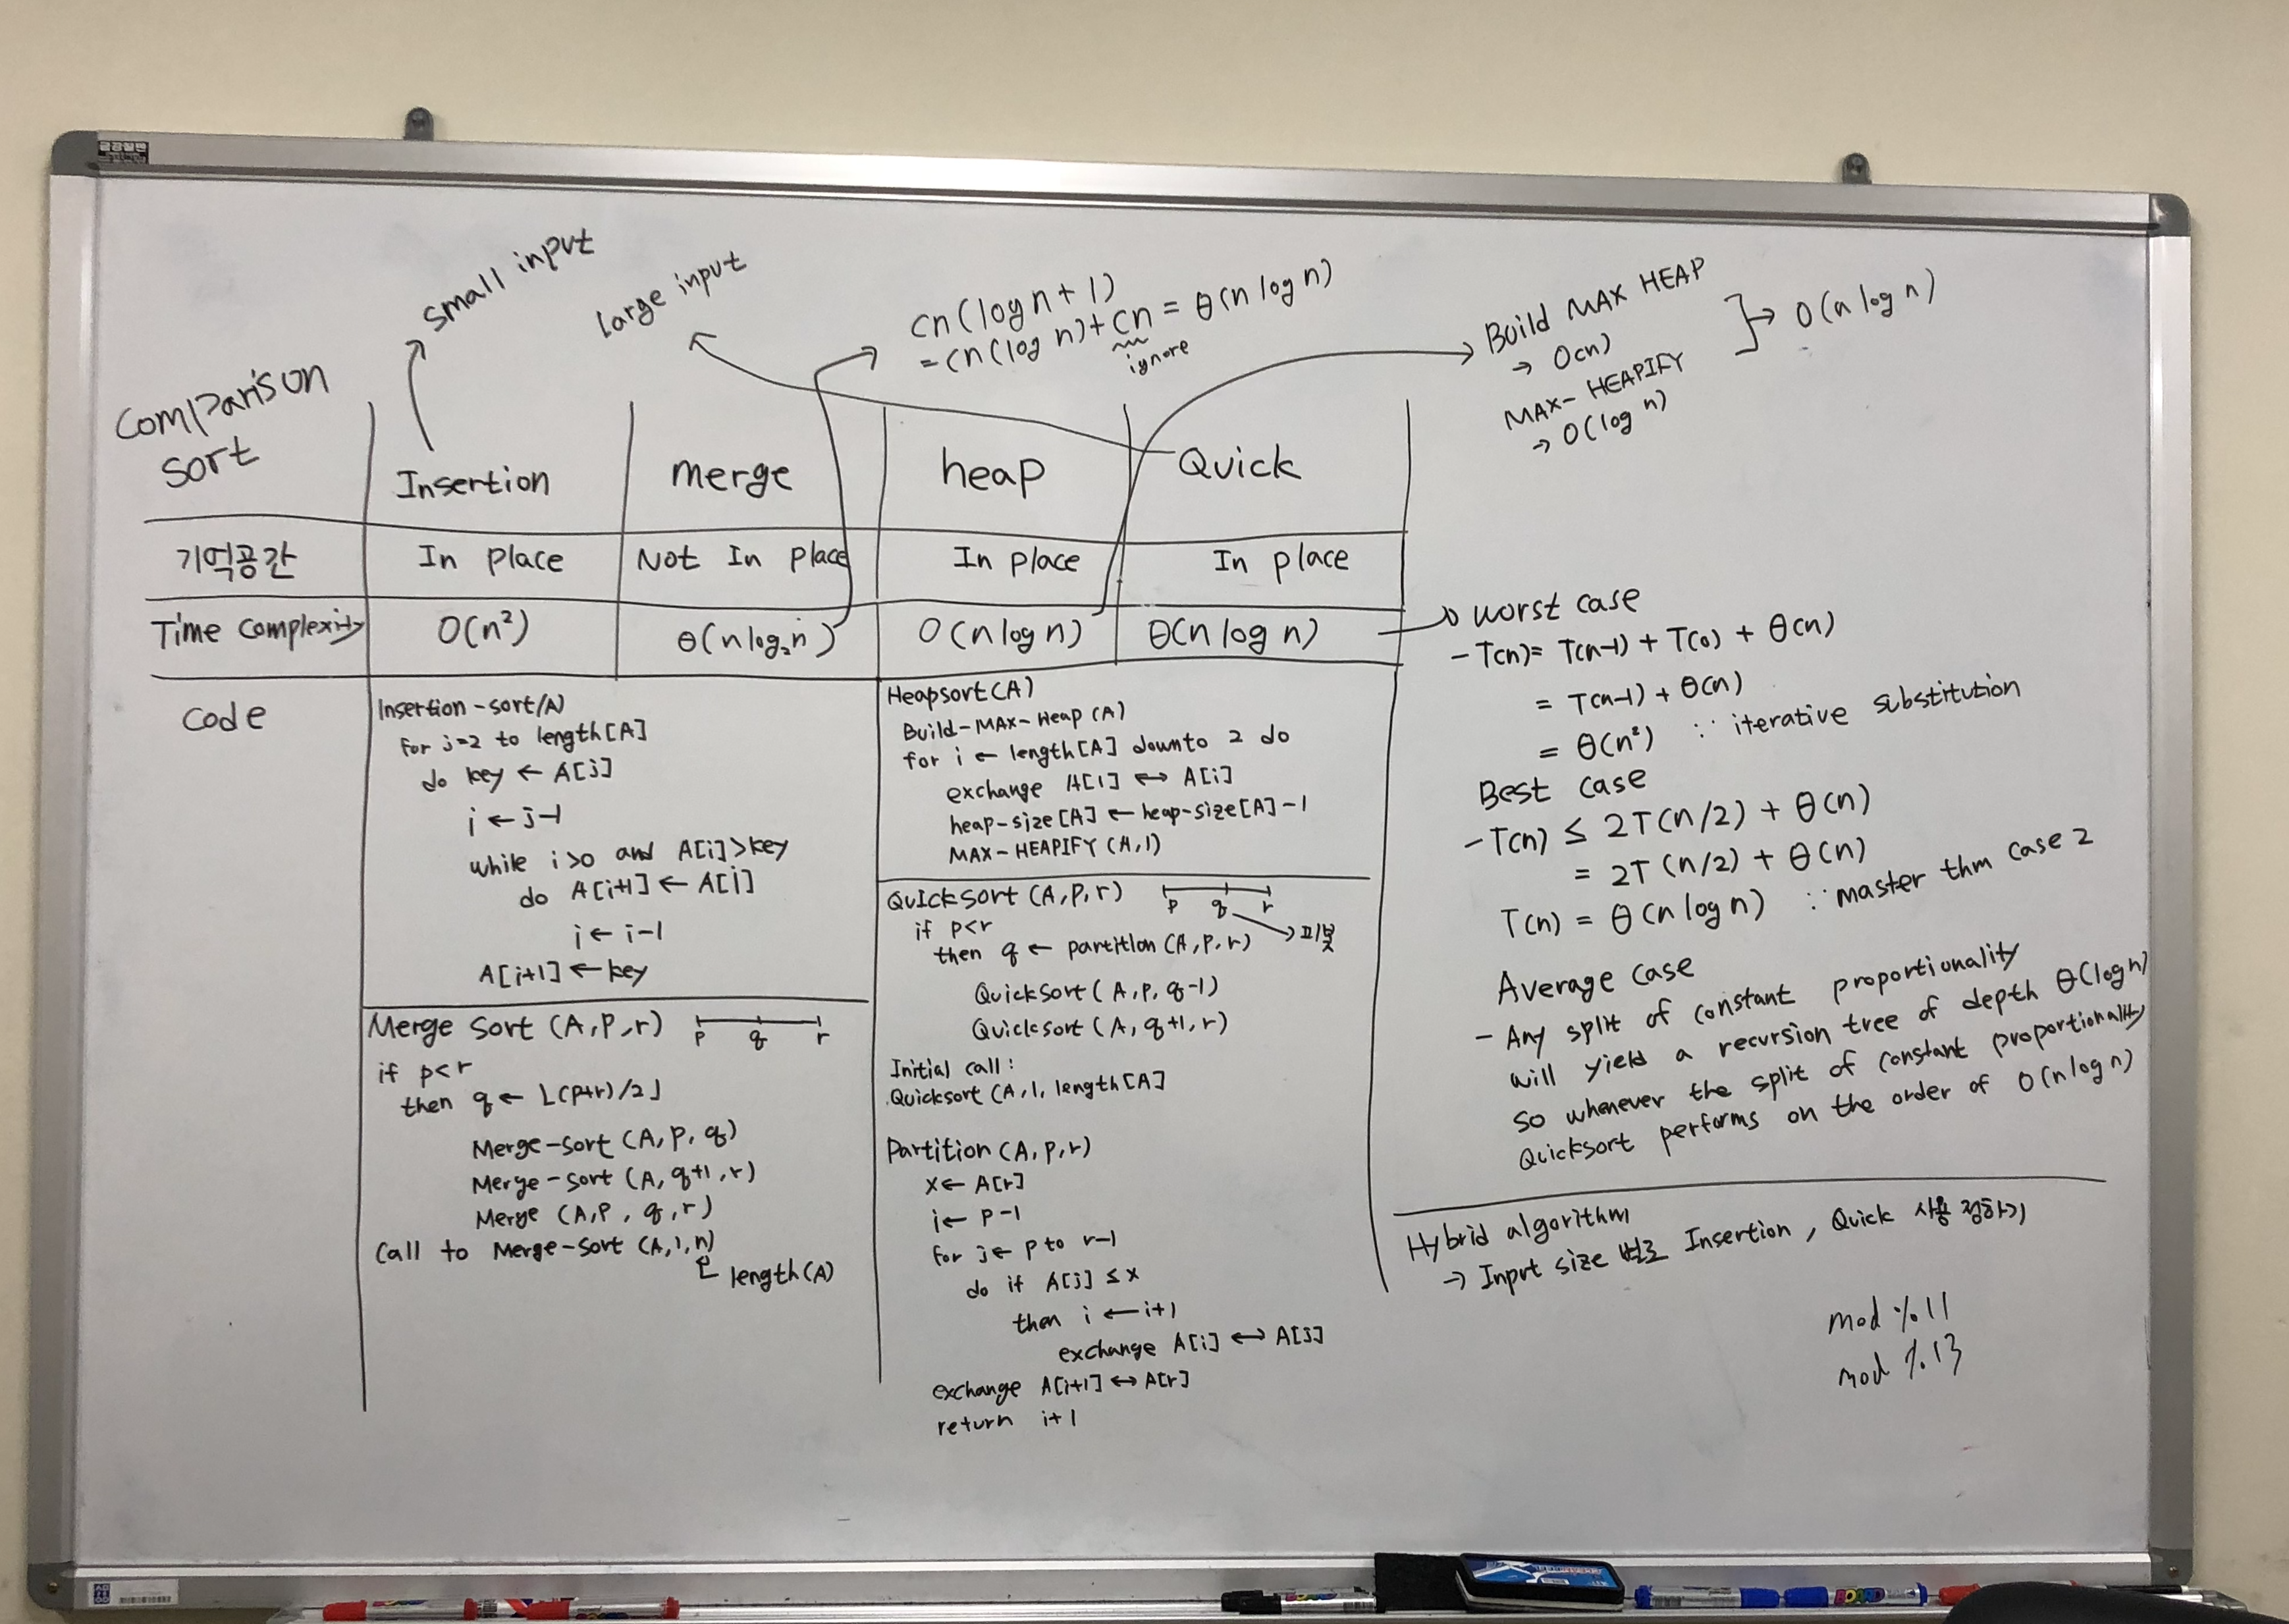 small input
large input
cn(log n + 1)
= cn(log n) + cn = θ(n log n)
ignore
Build MAX HEAP
→ O(n)
MAX-HEAPIFY
→ O(log n)
→ O(n log n)
Comparison sort
Insertion
merge
heap
Quick
기억공간
In place
Not In place
In place
In place
Time complexity
O(n²)
θ(n log₂ n)
O(n log n)
θ(n log n)
Code
Insertion-sort(A)
for j=2 to length[A]
do key ← A[j]
i ← j-1
while i>0 and A[i]>key
do A[i+1] ← A[i]
i ← i-1
A[i+1] ← key
Merge Sort (A,P,r)
p q r
if p<r
then q ← ⌊(p+r)/2⌋
Merge-sort (A, p, q)
Merge-sort (A, q+1, r)
Merge (A,P, q, r)
Call to Merge-sort (A,1,n)
length(A)
Heapsort(A)
Build-MAX-Heap (A)
for i ← length[A] downto 2 do
exchange A[1] ↔ A[i]
heap-size[A] ← heap-size[A]-1
MAX-HEAPIFY (A,1)
Quicksort (A,P,r)
p q r
피봇
if p<r
then q ← partition (A, p, r)
Quicksort (A, p, q-1)
Quicksort (A, q+1, r)
Initial call:
Quicksort (A, 1, length[A]
Partition (A, p, r)
x ← A[r]
i ← p-1
for j ← p to r-1
do if A[j] ≤ x
then i ← i+1
exchange A[i] ↔ A[j]
exchange A[i+1] ↔ A[r]
return i+1
worst case
- T(n) = T(n-1) + T(0) + θ(n)
= T(n-1) + θ(n)
= θ(n²) ∵ iterative substitution
Best case
- T(n) ≤ 2T(n/2) + θ(n)
= 2T(n/2) + θ(n)
T(n) = θ(n log n) ∵ master thm case 2
Average case
- Any split of constant proportionality
will yield a recursion tree of depth θ(log n)
so whenever the split of constant proportionality
Quicksort performs on the order of O(n log n)
Hybrid algorithm
→ Input size 별로 Insertion, Quick 사용 정하기
mod % 11
mod % 13